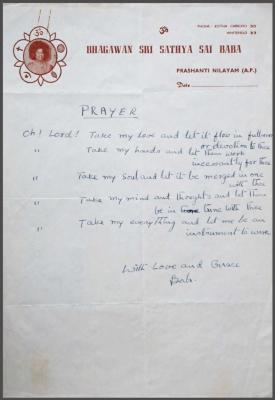 PHONE: KOTHA CHERUVU 30
WHITEFIELD 33
ॐ
BHAGAWAN SRI SATHYA SAI BABA
PRASHANTI NILAYAM (A.P.)
Date
PRAYER
Oh! Lord! Take my love and let it flow in fullness
of devotion to thee
" Take my hands and let them work
incessantly for thee
" Take my soul and let it be merged in one
with thee
" Take my mind and thoughts and let them
be in tune with thee
" Take my everything and let me be an
instrument to work
With Love and Grace
Baba